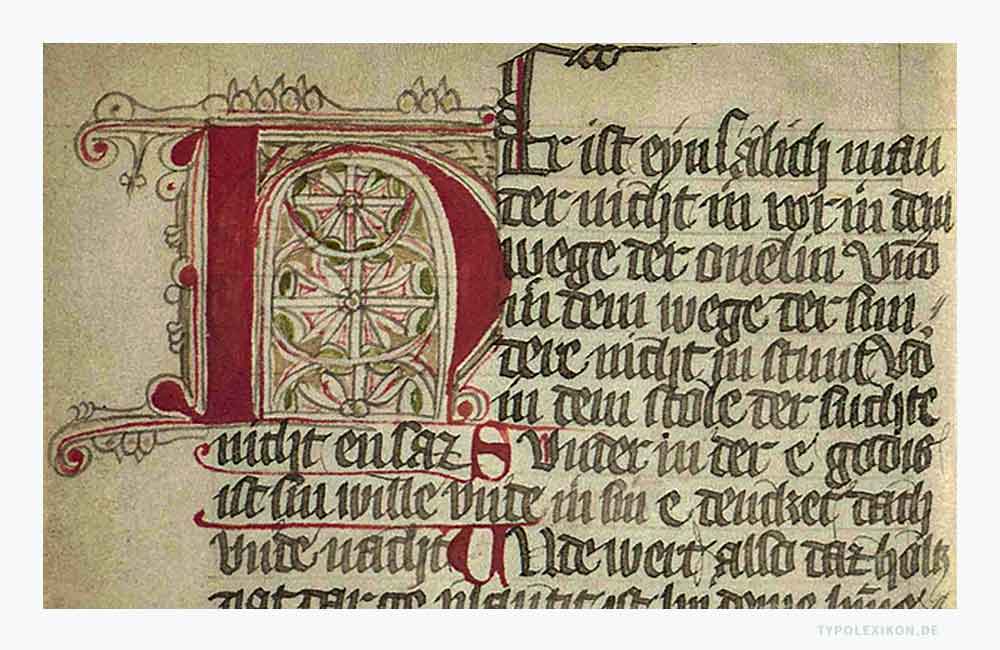 Er ist eyn salich man
der nicht in vor in dem
wege der ouelin vnd
in dem wege der sun
dere nicht in stunt Vd
in dem stole der suchte
nicht en saz S Vnder in der e godis
ist sin wille vnde in sin e dencket dach
vnde nacht U Vde wert also daz holtz
TYPOLEXIKON.DE